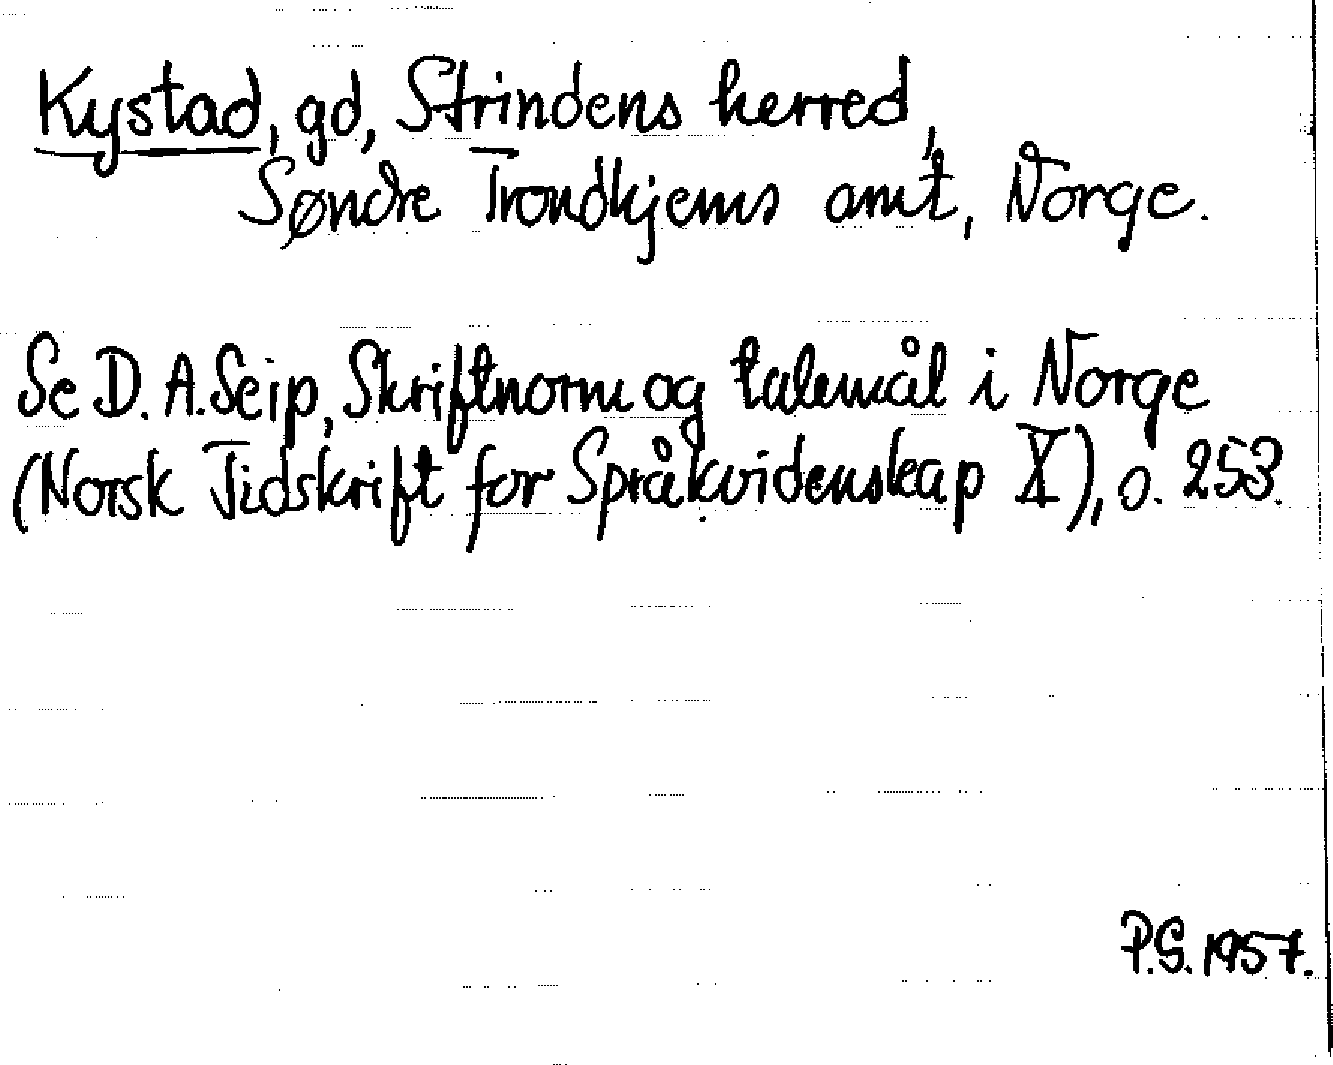 Kystad, gd, Strindens herred,
Søndre Trondkjems amt, Norge.
Se D. A. Seip, Skriftnorm og talemål i Norge
(Norsk Tidskrift for Språkvidenskap X), s. 253.
P.G. 1957.